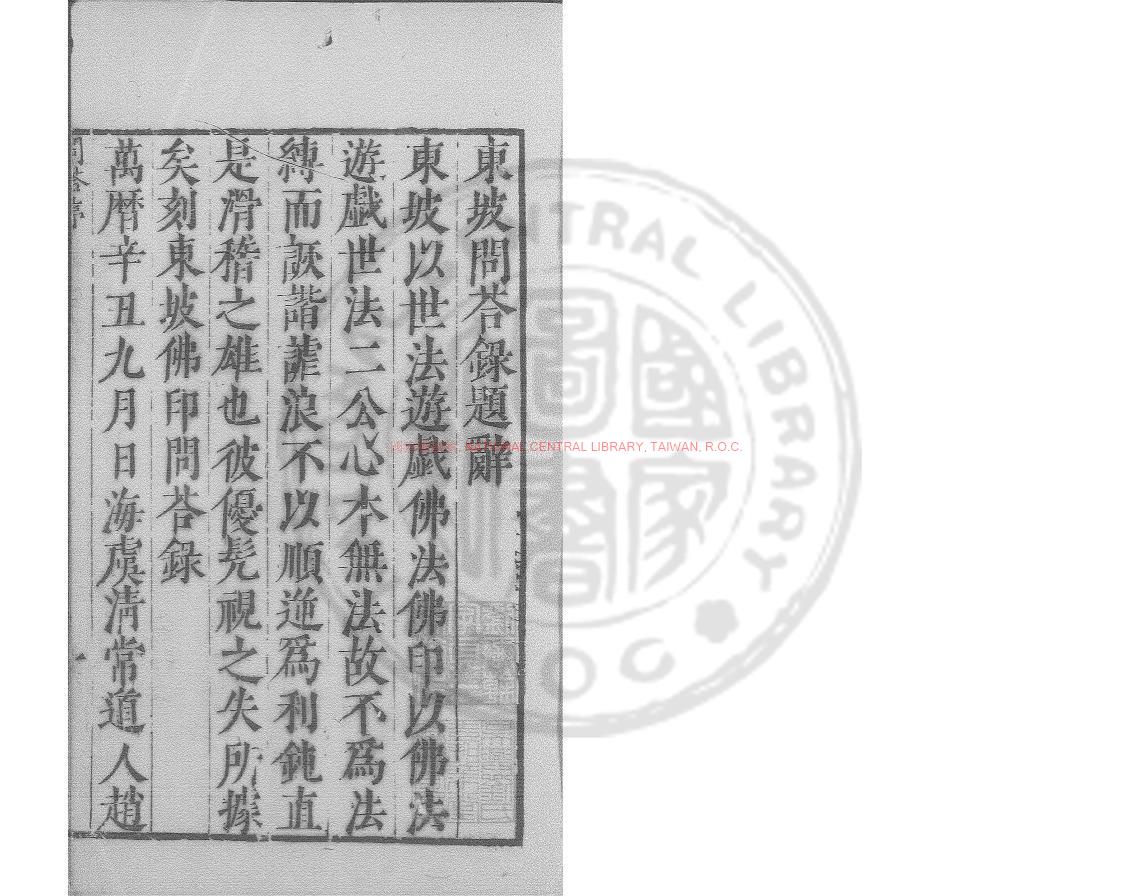 東坡問荅錄題辭
東坡以世法遊戲佛法佛印以佛法
遊戲世法二公心本無法故不爲法
縛而詼諧謔浪不以順逆爲利鈍直
是滑稽之雄也彼優髡視之失所據
矣刻東坡佛印問荅錄
萬曆辛丑九月日海虞清常道人趙
NATIONAL CENTRAL LIBRARY, TAIWAN, R.O.C.
CENTRAL LIBRARY